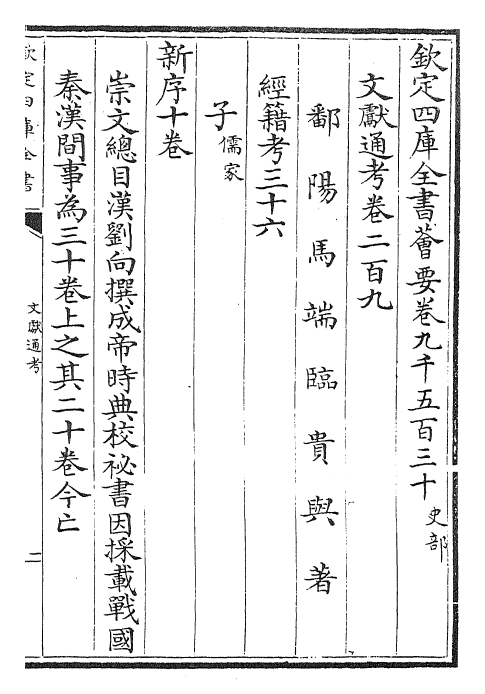 欽定四庫全書薈要卷九千五百三十史部
文獻通考卷二百九
鄱陽馬端臨貴與著
經籍考三十六
子儒家
新序十卷
崇文總目漢劉向撰成帝時典校祕書因採載戰國
秦漢間事為三十卷上之其二十卷今亡
欽定四庫全書
文獻通考
二